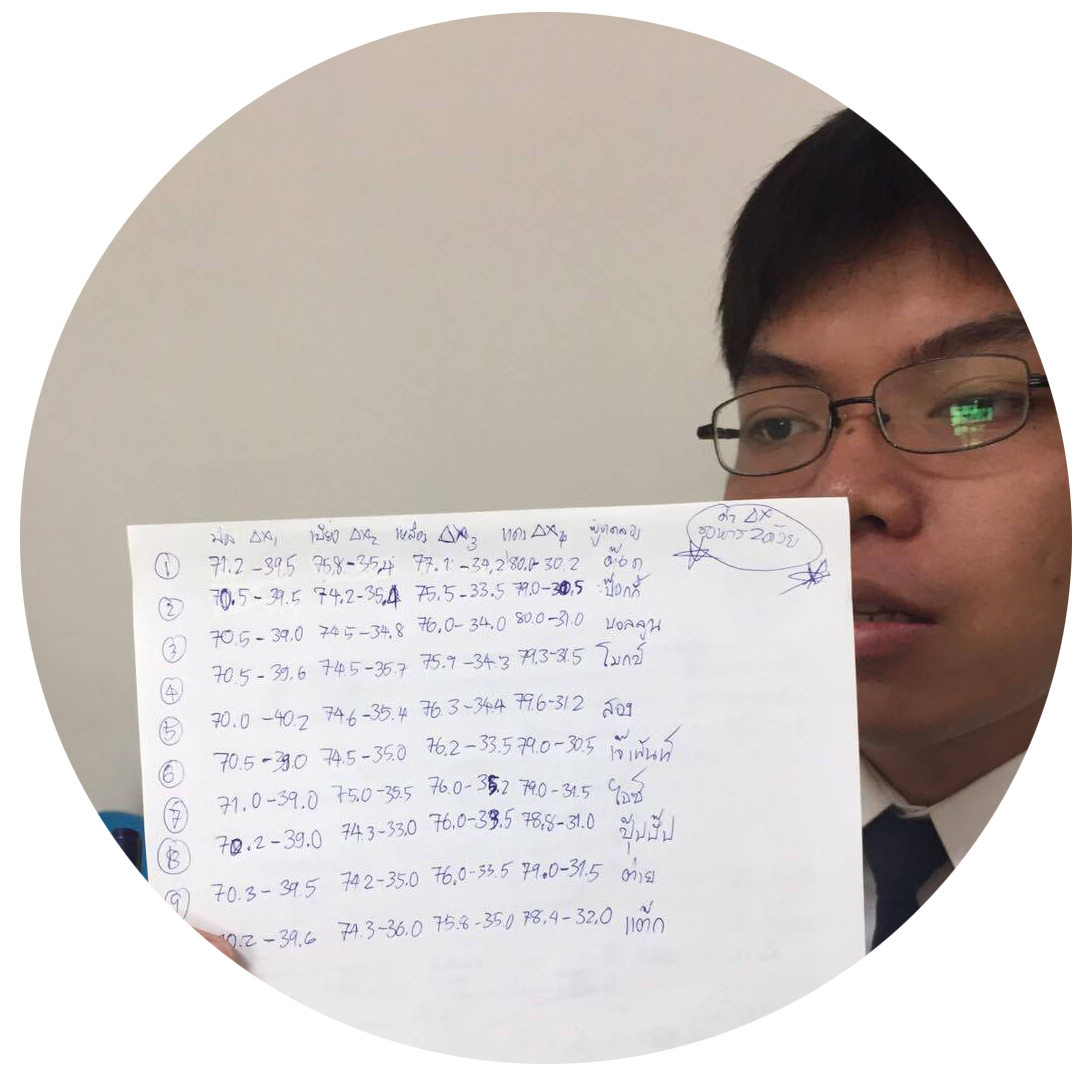 ม่วง Δx₁ เขียว Δx₂ เหลือง Δx₃ แดง Δx₄ ผู้ทดลอง
ค่า Δx
หาร 2 ด้วย
① 71.2 - 39.5 75.8 - 35.4 77.1 - 34.2 80.0 - 30.2 ต๊อด
② 70.5 - 39.5 74.2 - 35.1 75.5 - 33.5 79.0 - 30.5 ป๊อกกี้
③ 70.5 - 39.0 74.5 - 34.8 76.0 - 34.0 80.0 - 31.0 บอลลูน
④ 70.5 - 39.6 74.5 - 35.7 75.9 - 34.3 79.3 - 31.5 โมกข์
⑤ 70.0 - 40.2 74.6 - 35.4 76.3 - 34.4 79.6 - 31.2 สอง
⑥ 70.5 - 39.0 74.5 - 35.0 76.2 - 33.5 79.0 - 30.5
⑦ 71.0 - 39.0 75.0 - 35.5 76.0 - 35.2 79.0 - 31.5 ไอซ์
⑧ 70.2 - 39.0 74.3 - 33.0 76.0 - 33.5 78.8 - 31.0 ปุ๊บปั๊ป
⑨ 70.3 - 39.5 74.2 - 35.0 76.0 - 33.5 79.0 - 31.5 ต่าย
70.2 - 39.6 74.3 - 36.0 75.8 - 35.0 78.4 - 32.0 แต๊ก